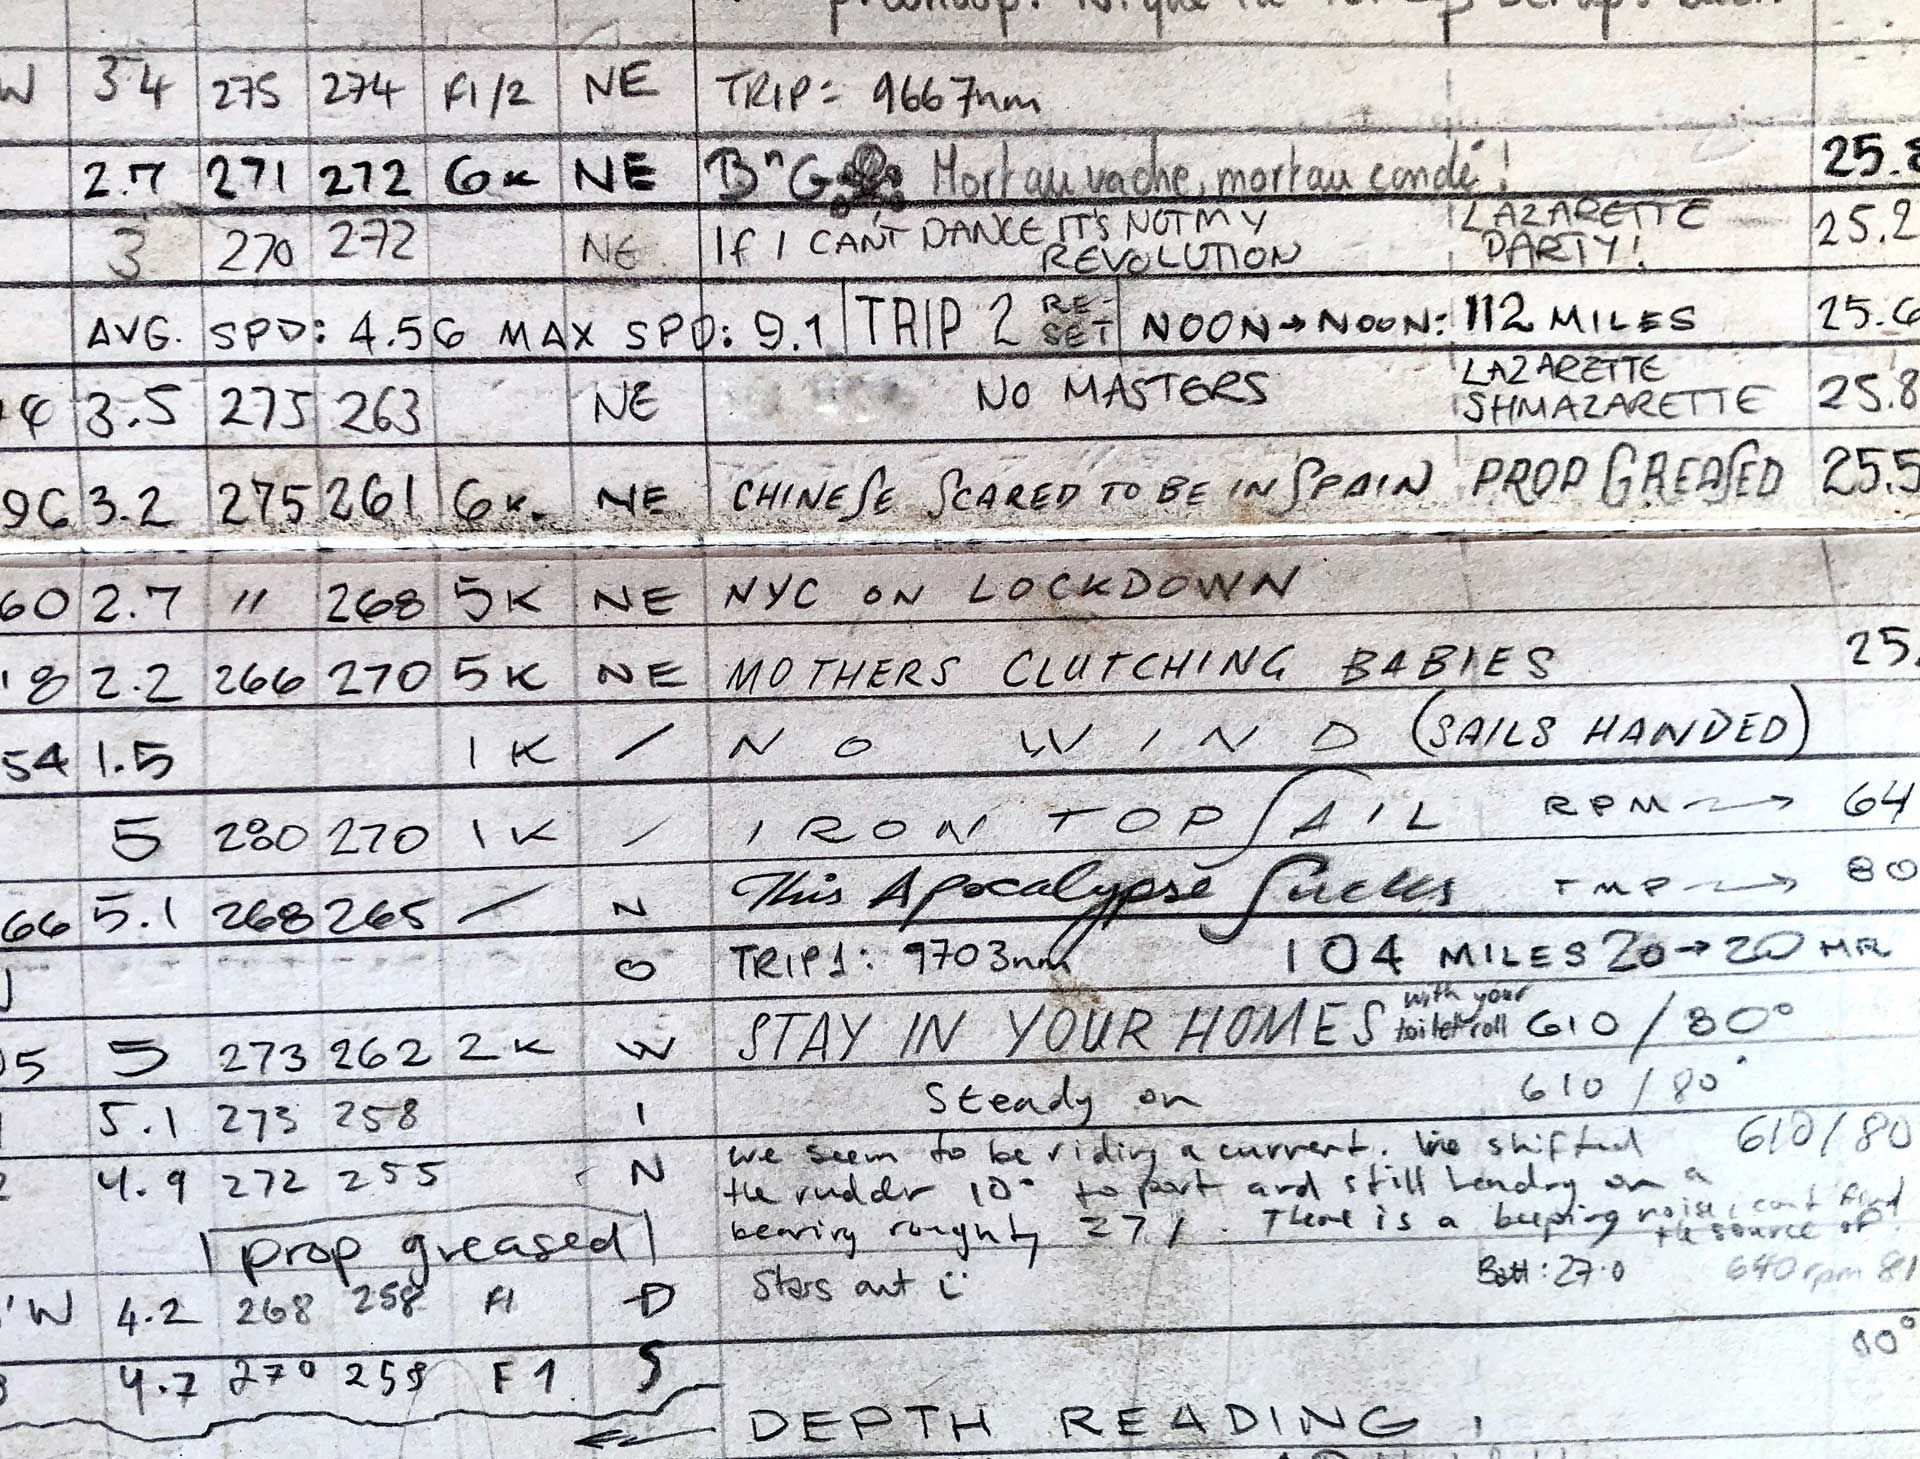 W 3.4 275 274 F1/2 NE TRIP= 9667nm
2.7 271 272 6K NE B"G Mort au vache, mort au condé! 25.8
3 270 272 NE If I CAN'T DANCE IT'S NOT MY REVOLUTION LAZARETTE PARTY! 25.2
AVG. SPD: 4.56 MAX SPD: 9.1 TRIP 2 RE-SET NOON→NOON: 112 MILES 25.6
4 3.5 275 263 NE NO MASTERS LAZARETTE SHMAZARETTE 25.8
96 3.2 275 261 6K. NE CHINESE SCARED TO BE IN SPAIN PROP GREASED 25.5
60 2.7 " 268 5K NE NYC ON LOCKDOWN
18 2.2 266 270 5K NE MOTHERS CLUTCHING BABIES 25.
54 1.5 1K / NO WIND (SAILS HANDED)
5 280 270 1K / IRON TOPSAIL RPM → 64
66 5.1 268 265 / N This Apocalypse Sucks TMP → 80
O TRIP1: 9703nm 104 MILES 20→20 HR
05 5 273 262 2K W STAY IN YOUR HOMES with your toilet roll 610/80°
5.1 273 258 I Steady on 610/80°
4.9 272 255 N we seem to be riding a current. We shifted 610/80
the rudder 10° to port and still landing on a
bearing roughly 271. There is a beeping noise, cant find the source of.
prop greased
'W 4.2 268 258 F1 D Stars out Batt: 27.0 640rpm 81
4.7 270 259 F1. S 80°
← DEPTH READING